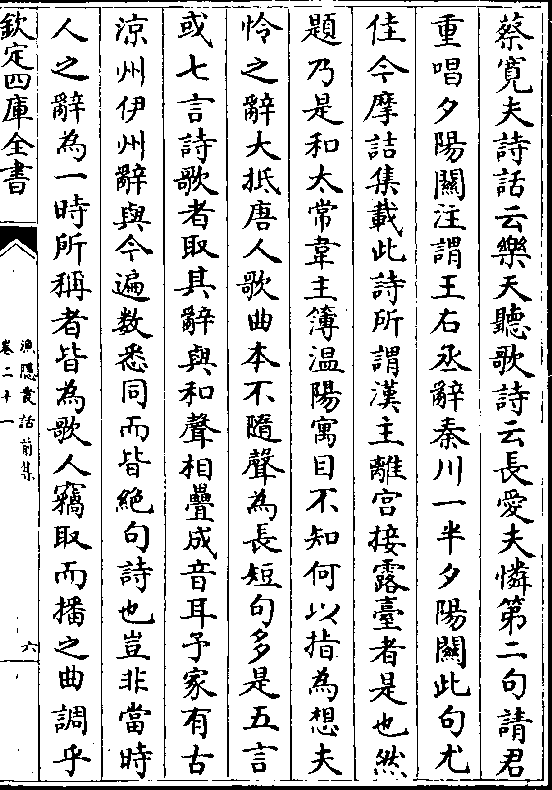 蔡寛夫詩話云樂天聽歌詩云長愛夫憐第二句請君
重唱夕陽關注謂王右丞辭秦川一半夕陽關此句尤
佳今摩詰集載此詩所謂漢主離宮接露臺者是也然
題乃是和太常韋主簿温陽寓目不知何以指為想夫
怜之辭大抵唐人歌曲本不隨聲為長短句多是五言
或七言詩歌者取其辭與和聲相疊成音耳予家有古
涼州伊州辭與今遍数悉同而皆絶句詩也豈非當時
人之辭為一時所稱者皆為歌人竊取而播之曲調乎
欽定四庫全書
漁隠叢話前集
卷二十一
六